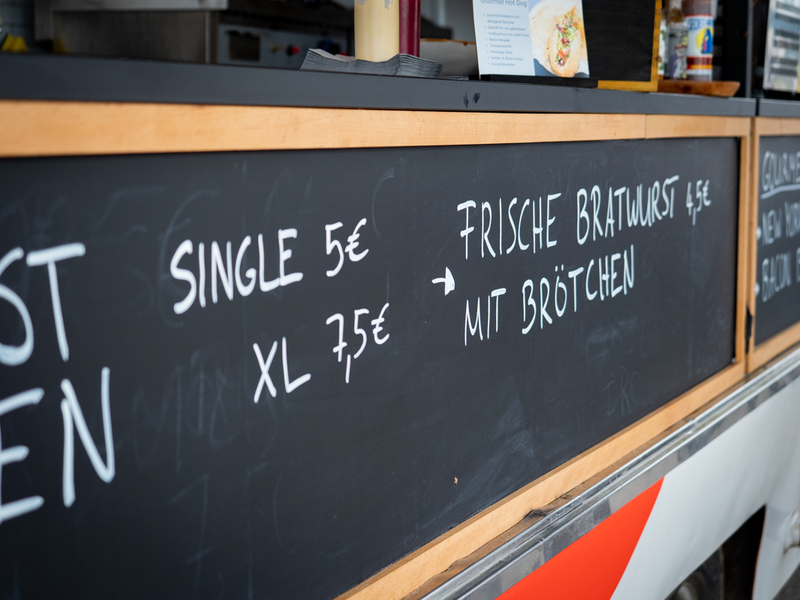 Gourmet Hot Dog
ST
EN
SINGLE 5€
XL 7,5€
FRISCHE BRATWURST 4,5€
MIT BRÖTCHEN
GOURME
NEW YOR
BACON